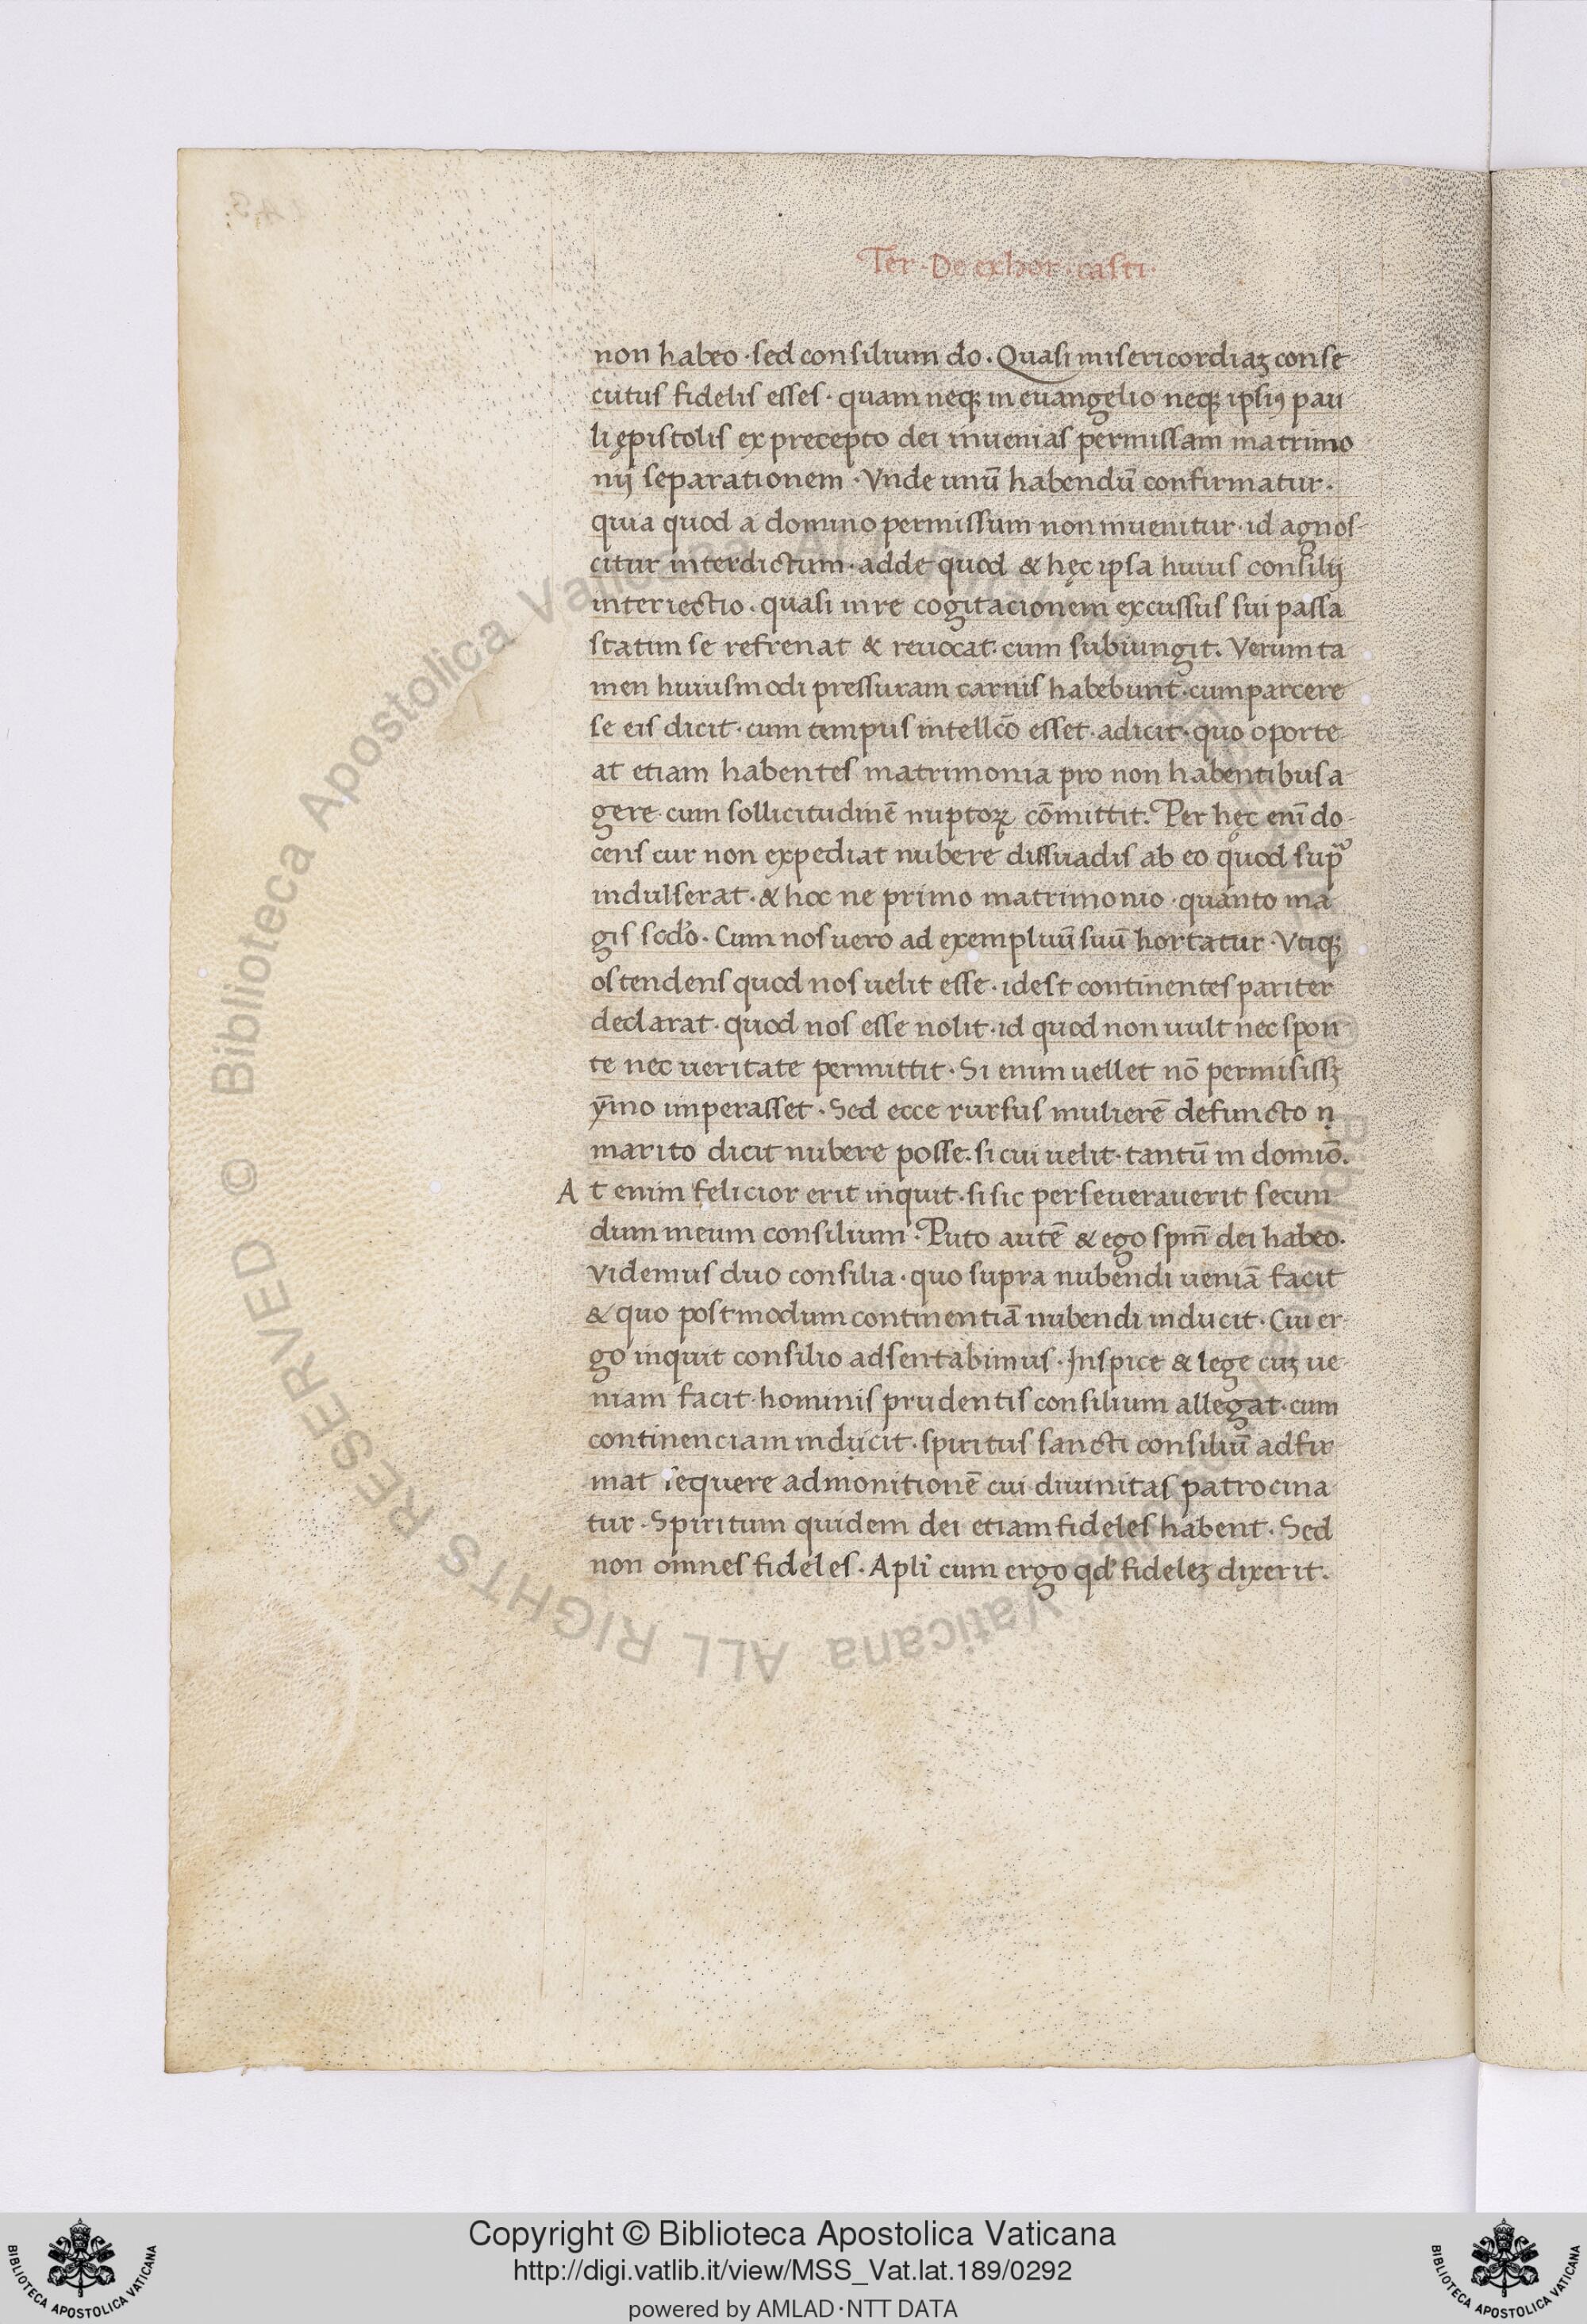 Ter · De exhor · casti ·
non habeo · sed consilium do . Quasi misericordiaʒ conse
cutus fidelis esses · quam neqʒ in euangelio neqʒ ipsiꝰ pau
li ępistolis ex precepto dei inuenias permissam matrimo
nij separationem · Vnde unū habendū confirmatur .
quia quod a domino permissum non inuenitur · id agnos-
citur interdictum · adde quod & hęc ipsa huius consilij
interiectio . quasi in re cogitacionem excussus sui passa
statim se refrenat & reuocat · cum subiungit . Verum ta
men huiusmodi pressuram carnis habebunt · cum parcere
se eis dicit · cum tempus intellcō esset · adicit · quo oporte-
at etiam habentes matrimonia pro non habentibus a-
gere · cum sollicitudinē nuptoꝝ cōmittit . Per hęc enī do-
cens cur non expediat nubere dissuadis ab eo quod sup̃
indulserat · & hoc ne primo matrimonio · quanto ma
gis scd̓o . Cum nos uero ad exempluū suū hortatur · Vtiqʒ
ostendens quod nos uelit esse · idest continentes pariter
declarat · quod nos esse nolit · id quod non uult nec spon
te nec ueritate permittit · Si enim uellet nō permisissʒ
ȳmo imperasset · Sed ecce rursus mulierē defuncto ṇ
marito dicit nubere posse . si cui uelit · tantū in domiō .
A t enim felicior erit inquit · si sic perseuerauerit secun
dum meum consilium · Puto autē & ego spm̄ dei habeo .
Videmus duo consilia · quo supra nubendi ueniā facit
& quo postmodum continentiā nubendi inducit · Cui er-
go inquit consilio adsentabimus · Inspice & lege cuʒ ue-
niam facit · hominis prudentis consilium allegat · cum
continenciam inducit · spiritus sancti consiliū adfir
mat sequere admonitionē cui diuinitas patrocina
tur · Spiritum quidem dei etiam fideles habent · Sed
non omnes fideles · Apl̓i cum ergo qd̓ fideleʒ dixerit .
© Biblioteca Apostolica Vaticana ALL RIGHTS RESERVED
Copyright © Biblioteca Apostolica Vaticana
http://digi.vatlib.it/view/MSS_Vat.lat.189/0292
powered by AMLAD · NTT DATA
BIBLIOTECA APOSTOLICA VATICANA
BIBLIOTECA APOSTOLICA VATICANA